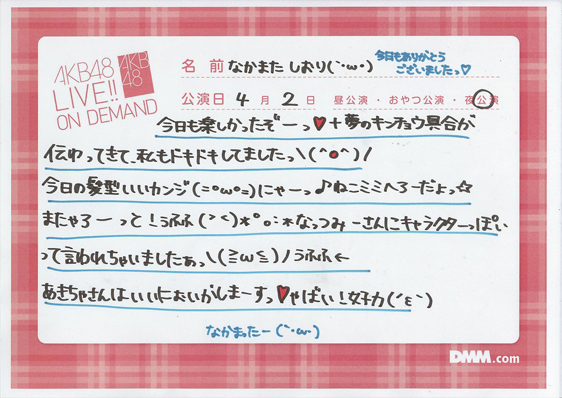 AKB48
LIVE!!
ON DEMAND
AKB
48
名 前 なかまた しおり(`･ω･)
今日もありがとう
ございましたっ♡
公演日 4 月 2 日・昼公演・おやつ公演・夜公演
今日も楽しかったぞーっ♥+夢のキンチョウ具合が
伝わってきて、私もドキドキしてましたっ\(^●^)/
今日の髪型いいカンジ(=°ω°=)にゃーっ♪ねこミミへろーだよっ☆
またやろーっと!うふふ(><)*°o:*なっつみーさんにキャラクターっぽい
って言われちゃいましたぁっ\(≧ω≦)/うふふ←
あきちゃさんはいいにおいがしまーすっ♥やばい!女子力(´ε`)
なかまったー(`･ω･)
DMM.com